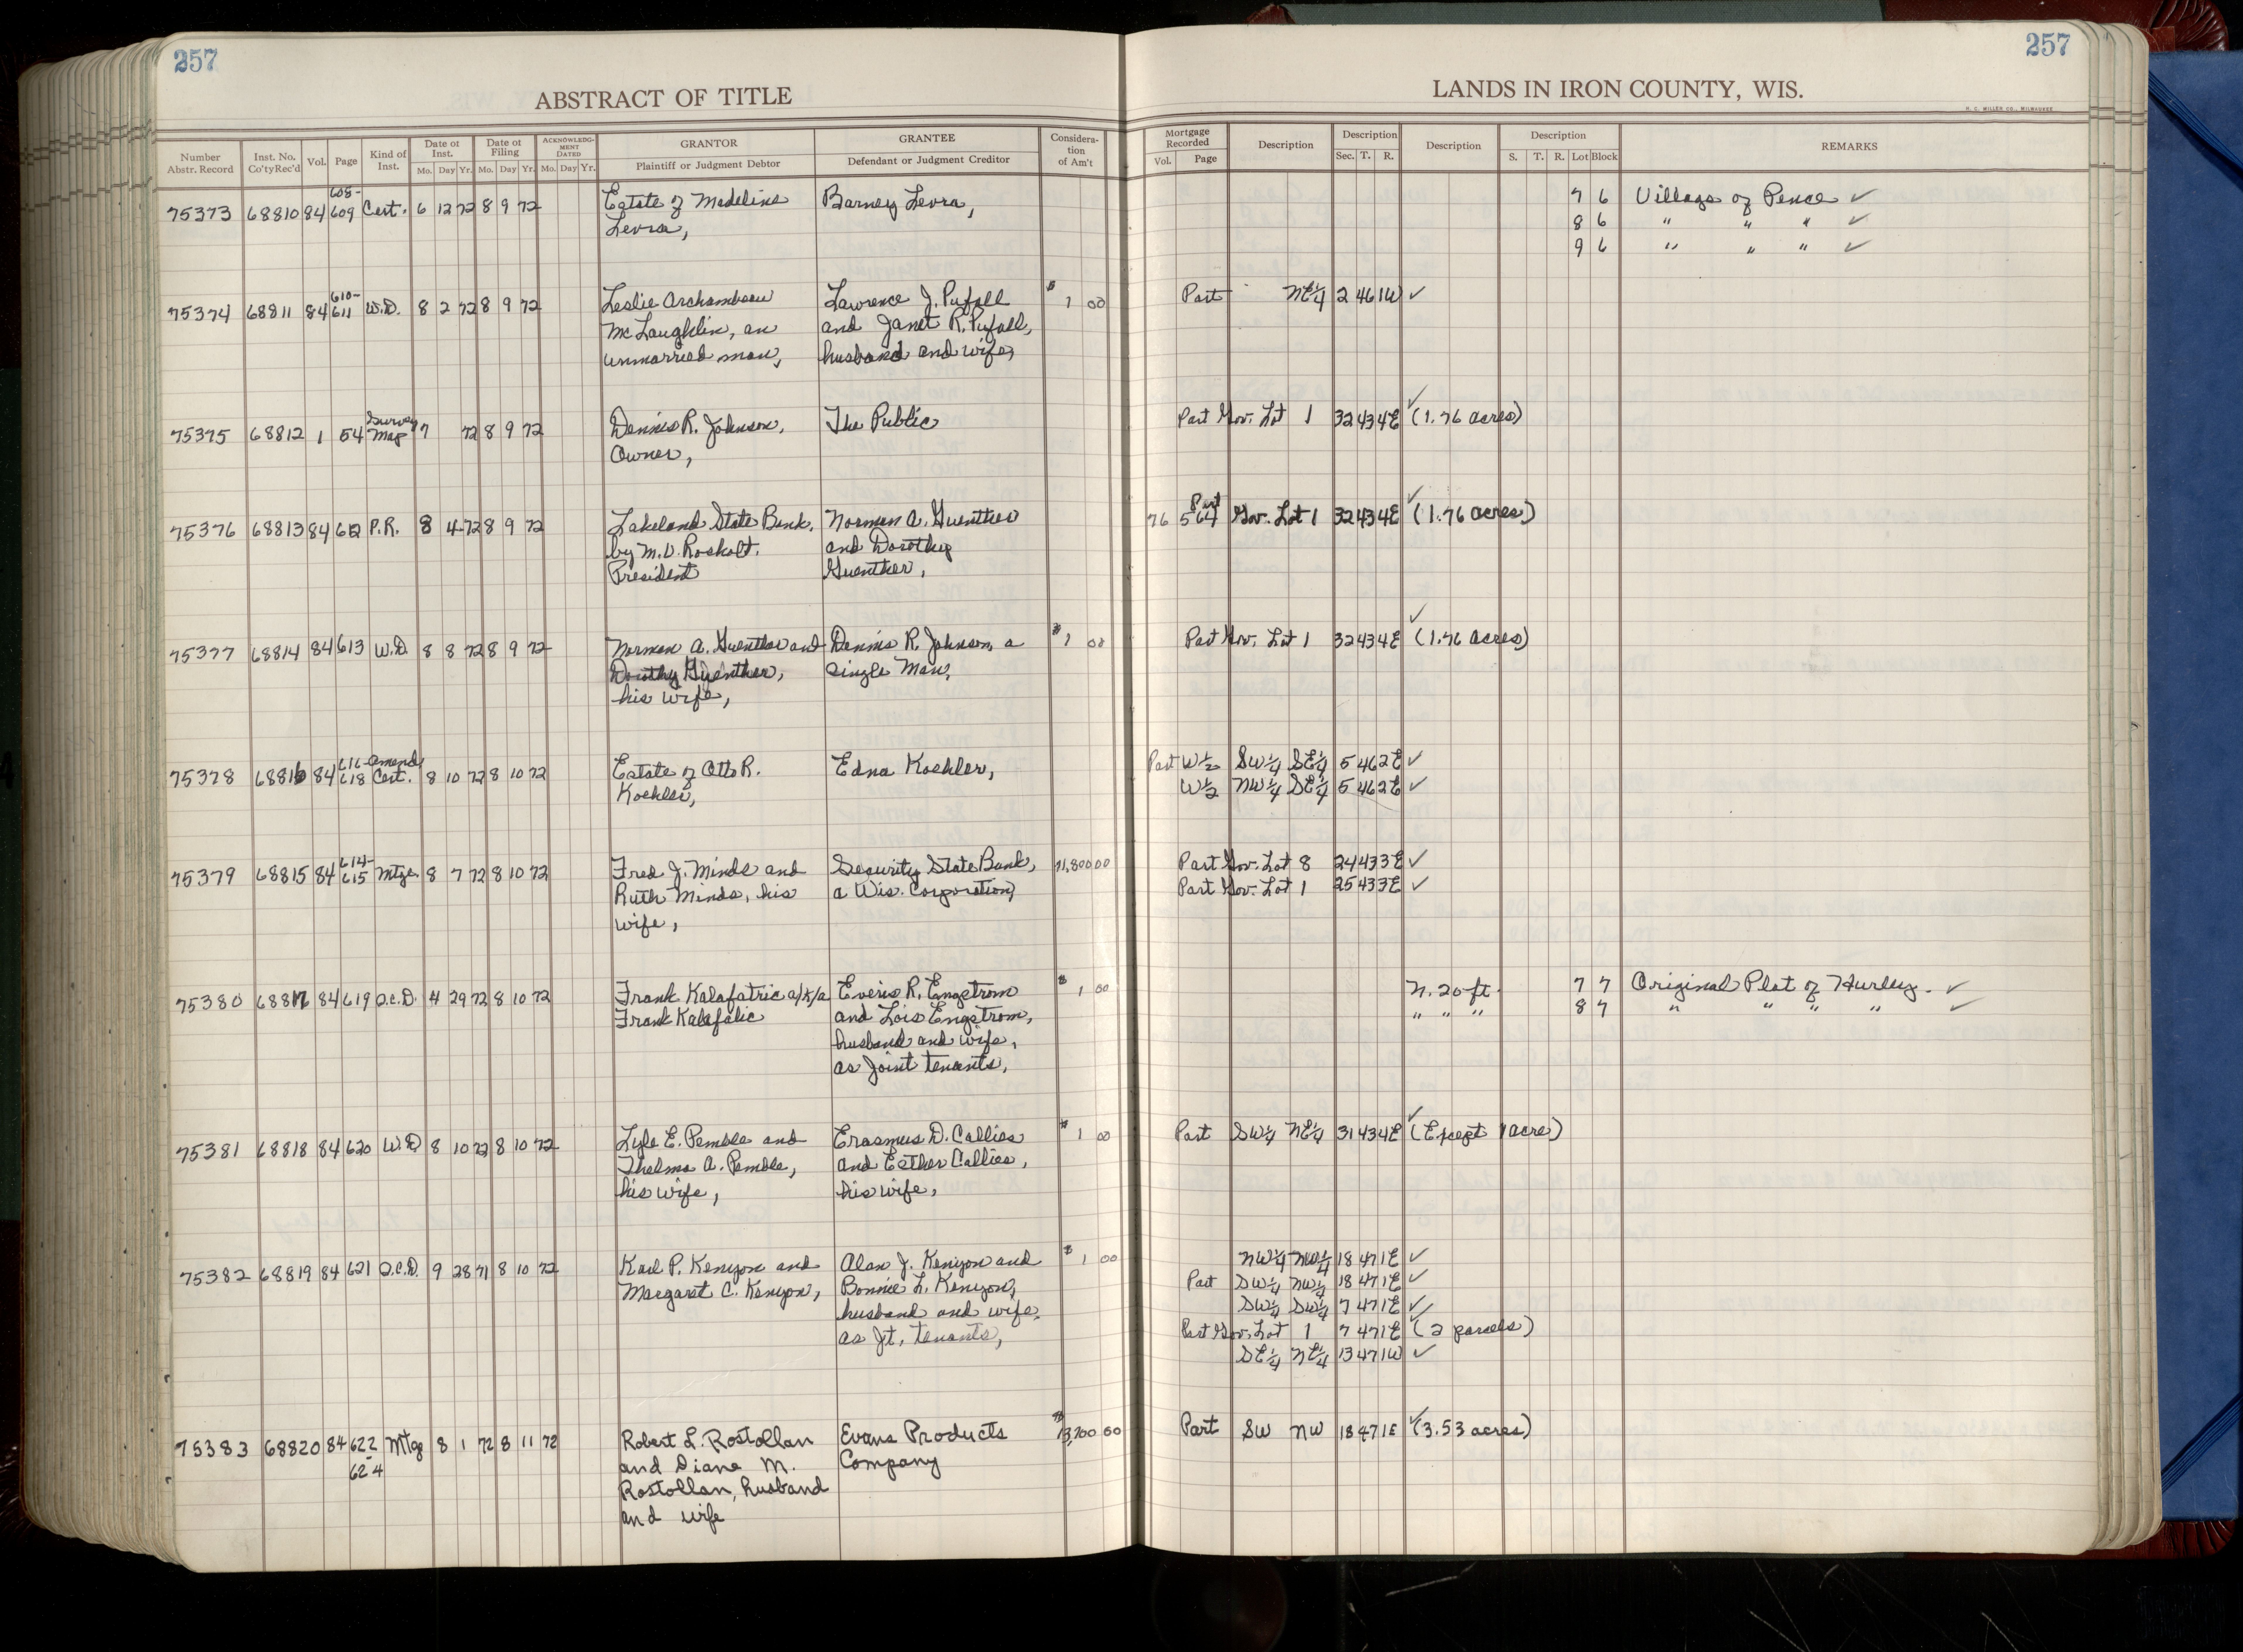 257
257
ABSTRACT OF TITLE
LANDS IN IRON COUNTY, WIS.
H. C. MILLER CO., MILWAUKEE
Number Abstr. Record Inst. No. Co'tyRec'd Vol. Page Kind of Inst. Date of Inst. Mo. Day Yr. Date of Filing Mo. Day Yr. ACKNOWLEDGMENT DATED Mo. Day Yr. GRANTOR Plaintiff or Judgment Debtor GRANTEE Defendant or Judgment Creditor Consideration of Am't Mortgage Recorded Vol. Page Description Description Sec. T. R. Description Description S. T. R. Lot Block REMARKS
75373 68810 84 608-609 Cert. 6 12 72 8 9 72 Estate of Madeline Barney Levra, 7 6 Village of Pence ✓
Levra, 8 6 " " " ✓
9 6 " " " ✓
75374 68811 84 610-611 W.D. 8 2 72 8 9 72 Leslie Archambeau Lawrence J. Pufall $ 1 00 Part NE¼ 2 46 1W ✓
McLaughlin, an and Janet R. Pufall,
unmarried man, husband and wife,
75375 68812 1 54 Survey Map 7 72 8 9 72 Dennis R. Johnson, The Public Part Gov. Lot 1 32 43 4E ✓ (1.76 acres)
Owner,
75376 68813 84 612 P.R. 8 4 72 8 9 72 Lakeland State Bank, Norman A. Guenther 76 564 Part Gov. Lot 1 32 43 4E ✓ (1.76 acres)
by M.V. Rosholt. and Dorothy
President Guenther,
75377 68814 84 613 W.D. 8 8 72 8 9 72 Norman A. Guenther and Dennis R. Johnson, a $ 1 00 Part Gov. Lot 1 32 43 4E ✓ (1.76 acres)
Dorothy Guenther, single man,
his wife,
75378 68816 84 616-618 Amend Cert. 8 10 72 8 10 72 Estate of Otto R. Edna Koehler, Part W½ SW¼ SE¼ 5 46 2E ✓
Koehler, W½ NW¼ SE¼ 5 46 2E ✓
75379 68815 84 614-615 Mtge. 8 7 72 8 10 72 Fred J. Minds and Security State Bank, 11,800 00 Part Gov. Lot 8 24 43 3E ✓
Ruth Minds, his a Wis. Corporation, Part Gov. Lot 1 25 43 3E ✓
wife,
75380 68817 84 619 Q.C.D. 4 29 72 8 10 72 Frank Kalafatric a/k/a Everis R. Engstrom $ 1 00 N. 20 ft. 7 7 Original Plat of Hurley. ✓
Frank Kalafatic and Lois Engstrom, " " " 8 7 " " " " ✓
husband and wife,
as joint tenants,
75381 68818 84 620 W.D 8 10 72 8 10 72 Lyle E. Pemble and Erasmus D. Callies $ 1 00 Part SW¼ NE¼ 31 43 4E ✓ (Except 1 acre)
Thelma A. Pemble, and Esther Callies,
his wife, his wife,
75382 68819 84 621 Q.C.D. 9 28 71 8 10 72 Karl P. Kenyon and Alan J. Kenyon and $ 1 00 NW¼ NW¼ 18 47 1E ✓
Margaret C. Kenyon, Bonnie L. Kenyon, Part SW¼ NW¼ 18 47 1E ✓
husband and wife, SW¼ SW¼ 7 47 1E ✓
as Jt. tenants, Part Gov. Lot 1 7 47 1E ✓ (2 parcels)
SE¼ NE¼ 13 47 1W ✓
75383 68820 84 622-624 Mtge 8 1 72 8 11 72 Robert L. Rostollan Evans Products $ 13,700.00 Part SW NW 18 47 1E ✓ (3.53 acres)
and Diane M. Company
Rostollan, husband
and wife